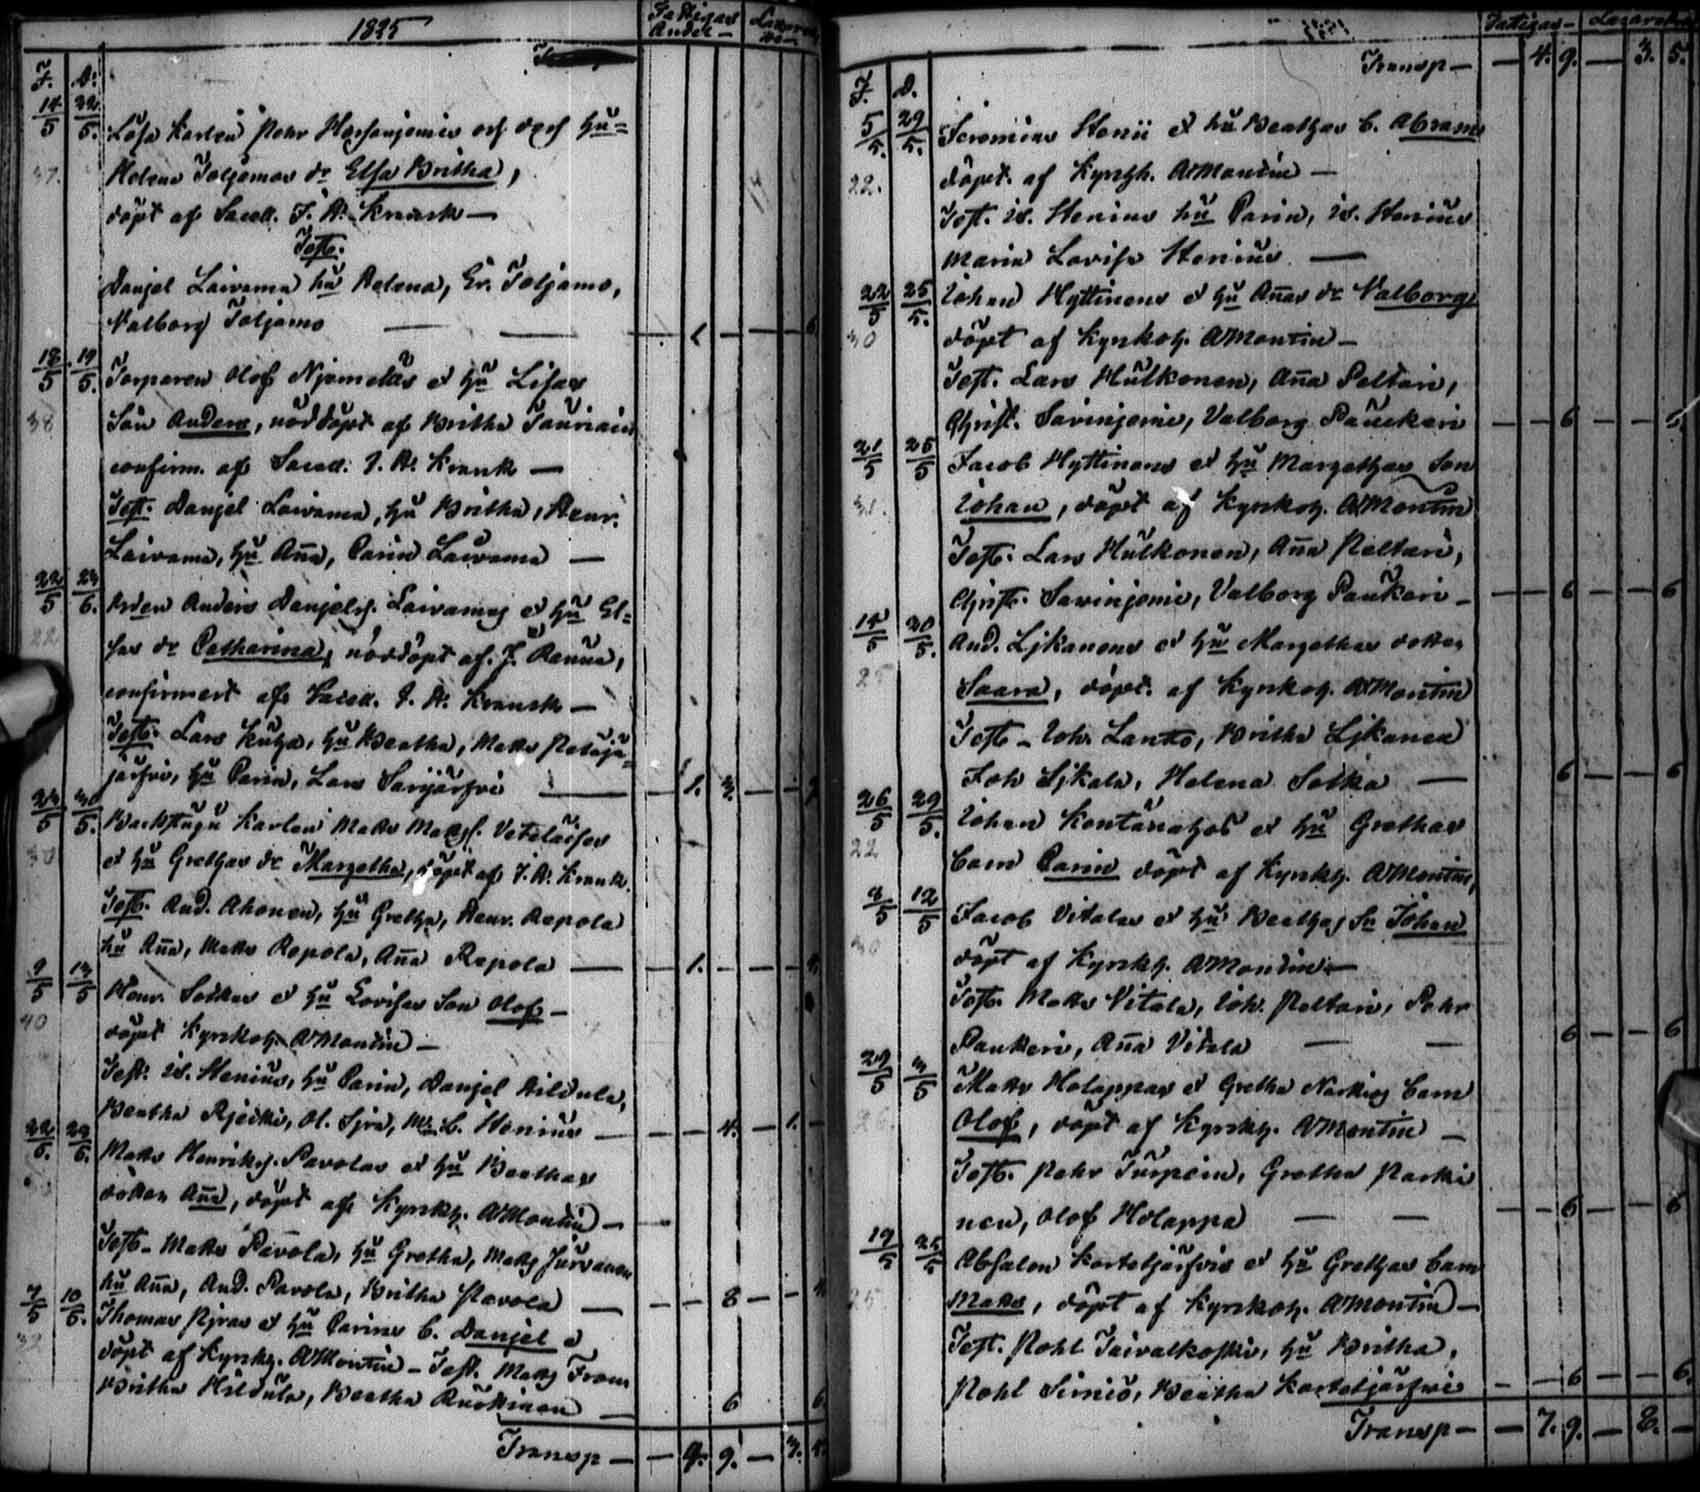 1825
Fattigas Andel —
F. D.
14/5 22/5. Lösa Karlen Pehr Harjanjemies och dess hu=
37. Helena Toljamos dr Elsa Britha,
döpt af Sacell. J. H. Kranck —
Test.
Danjel Laivama hu Helena, Er. Toljamo,
Valborg Toljamo — —
18/5 19/5. Torparen Olof Njemeläs et hu Lisas
38 Son Anders, nöddöpt af Britha Tauriain
confirm. af Sacell. J. H. Kranck —
Test. Danjel Laivama, hu Britha, Henr.
Laivama, hu Aña, Carin Laivama —
22/5 24/5. Anders Danjelss. Laivamas et hu El=
22 sas dr Catharina, nöddöpt af J. Ranua,
confirmert af Sacell. J. H. Kranck —
Test. Lars Kuha, hu Beatha, Matts Petäjä=
järfvi, hu Carin, Lars Sarijärfvi — 1. 3.
24/5 30/5. Backstugu Karlen Matts Matss. Veteläises
30 et hu Grethas dr Margetha, döpt af J. H. Kranck.
Test. And. Ahonen, hu Gretha, Henr. Repola
hu Aña, Matts Repola, Aña Repola — 1. —
9/5 13/5 Henr. Sotkas et hu Lovisas Son Olof —
40 döpt Kyrkoh. AMontin —
Test. Is. Stenius, hu Carin, Danjel Hildula,
Beatha Rjecki, Ol. Sjra, M. L. Stenius — 4. — 1. —
22/5. 29/5. Matts Henrikss. Pavolas et hu Beathas
dotter Aña, döpt af Kyrkh. AMontin —
Test. Matts Pavola, hu Gretha, Matts Jurvanen
hu Aña, And. Pavola, Britha Pavola — 8 —
7/5 10/5. Thomas Pjras et hu Carins b. Danjel
döpt af Kyrkh. AMontin — Test. Matts From
Britha Hildula, Beatha Ruokinen — 6 6
Transp — — 4. 9. — 3. 5.
Fattigas — Lazarets
Transp — — 4. 9. — 3. 5.
F. D.
5/5. 29/5. Jeremias Stenii et hu Beathas b. Abram
22. döpt. af Kyrkh. AMontin —
Test. Is. Stenius hu Carin, Is. Stenius
Maria Lovisa Stenius —
22/5 25/5. Johan Hyttinens et hu Añas dr Valborg
30 döpt af Kyrkoh. AMontin —
Test. Lars Hulkonen, Aña Peltari,
Christ. Savinjemi, Valborg Paukeri — — 6 — —
21/5 25/5 Jacob Hyttinens et hu Margethas Son
31. Johan, döpt af Kyrkoh. AMontin
Test. Lars Hulkonen, Aña Peltari,
Christ. Savinjemi, Valborg Paukeri — — — 6 — — 6
14/5 20/5. And. Ljkanens et hu Margethas dotter
25 Saara, döpt. af Kyrkoh. AMontin
Test — Joh. Lantto, Britha Ljkanen
Joh Sjkala, Helena Sotka — 6 — — 6
26/5 29/5. Johan Kontänahos et hu Grethas
22 barn Carin döpt af Kyrkh. AMontin,
8/5 12/5 Jacob Vitalas et hu Beathas Sn Johan
30 döpt af Kyrkh. AMontin —
Test. Matts Vitala, Joh. Peltari, Pehr
Paukeri, Aña Vitala — — 6 — — 6
29/5 Matts Holappas et Gretha Narkias barn
26. Olof, döpt af Kyrkh. AMontin —
Test. Pehr Turpein, Gretha Parki
nen, Olof Holappa — — — — 6 — — 6
19/5 25/5 Absalon Kortetjärfvis et hu Grethas barn
25 Matts, döpt af Kyrkoh. AMontin —
Test. Pohl Taivalkoski, hu Britha,
Pohl Simiö, Beatha Kortetjärfvi — — 6 — — 6.
Transp — — 7. 9. — 8. —